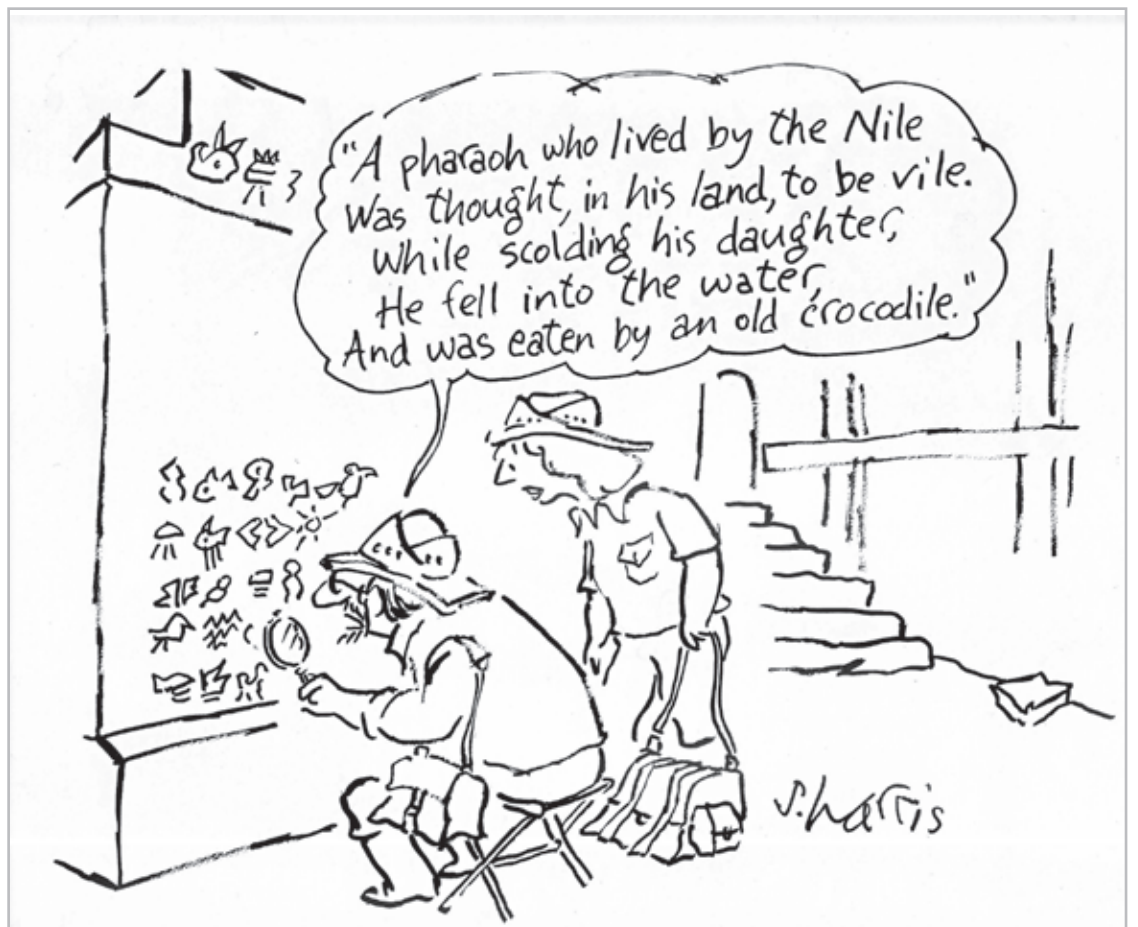 "A pharaoh who lived by the Nile
Was thought, in his land, to be vile.
While scolding his daughter,
He fell into the water,
And was eaten by an old crocodile."
S. Harris